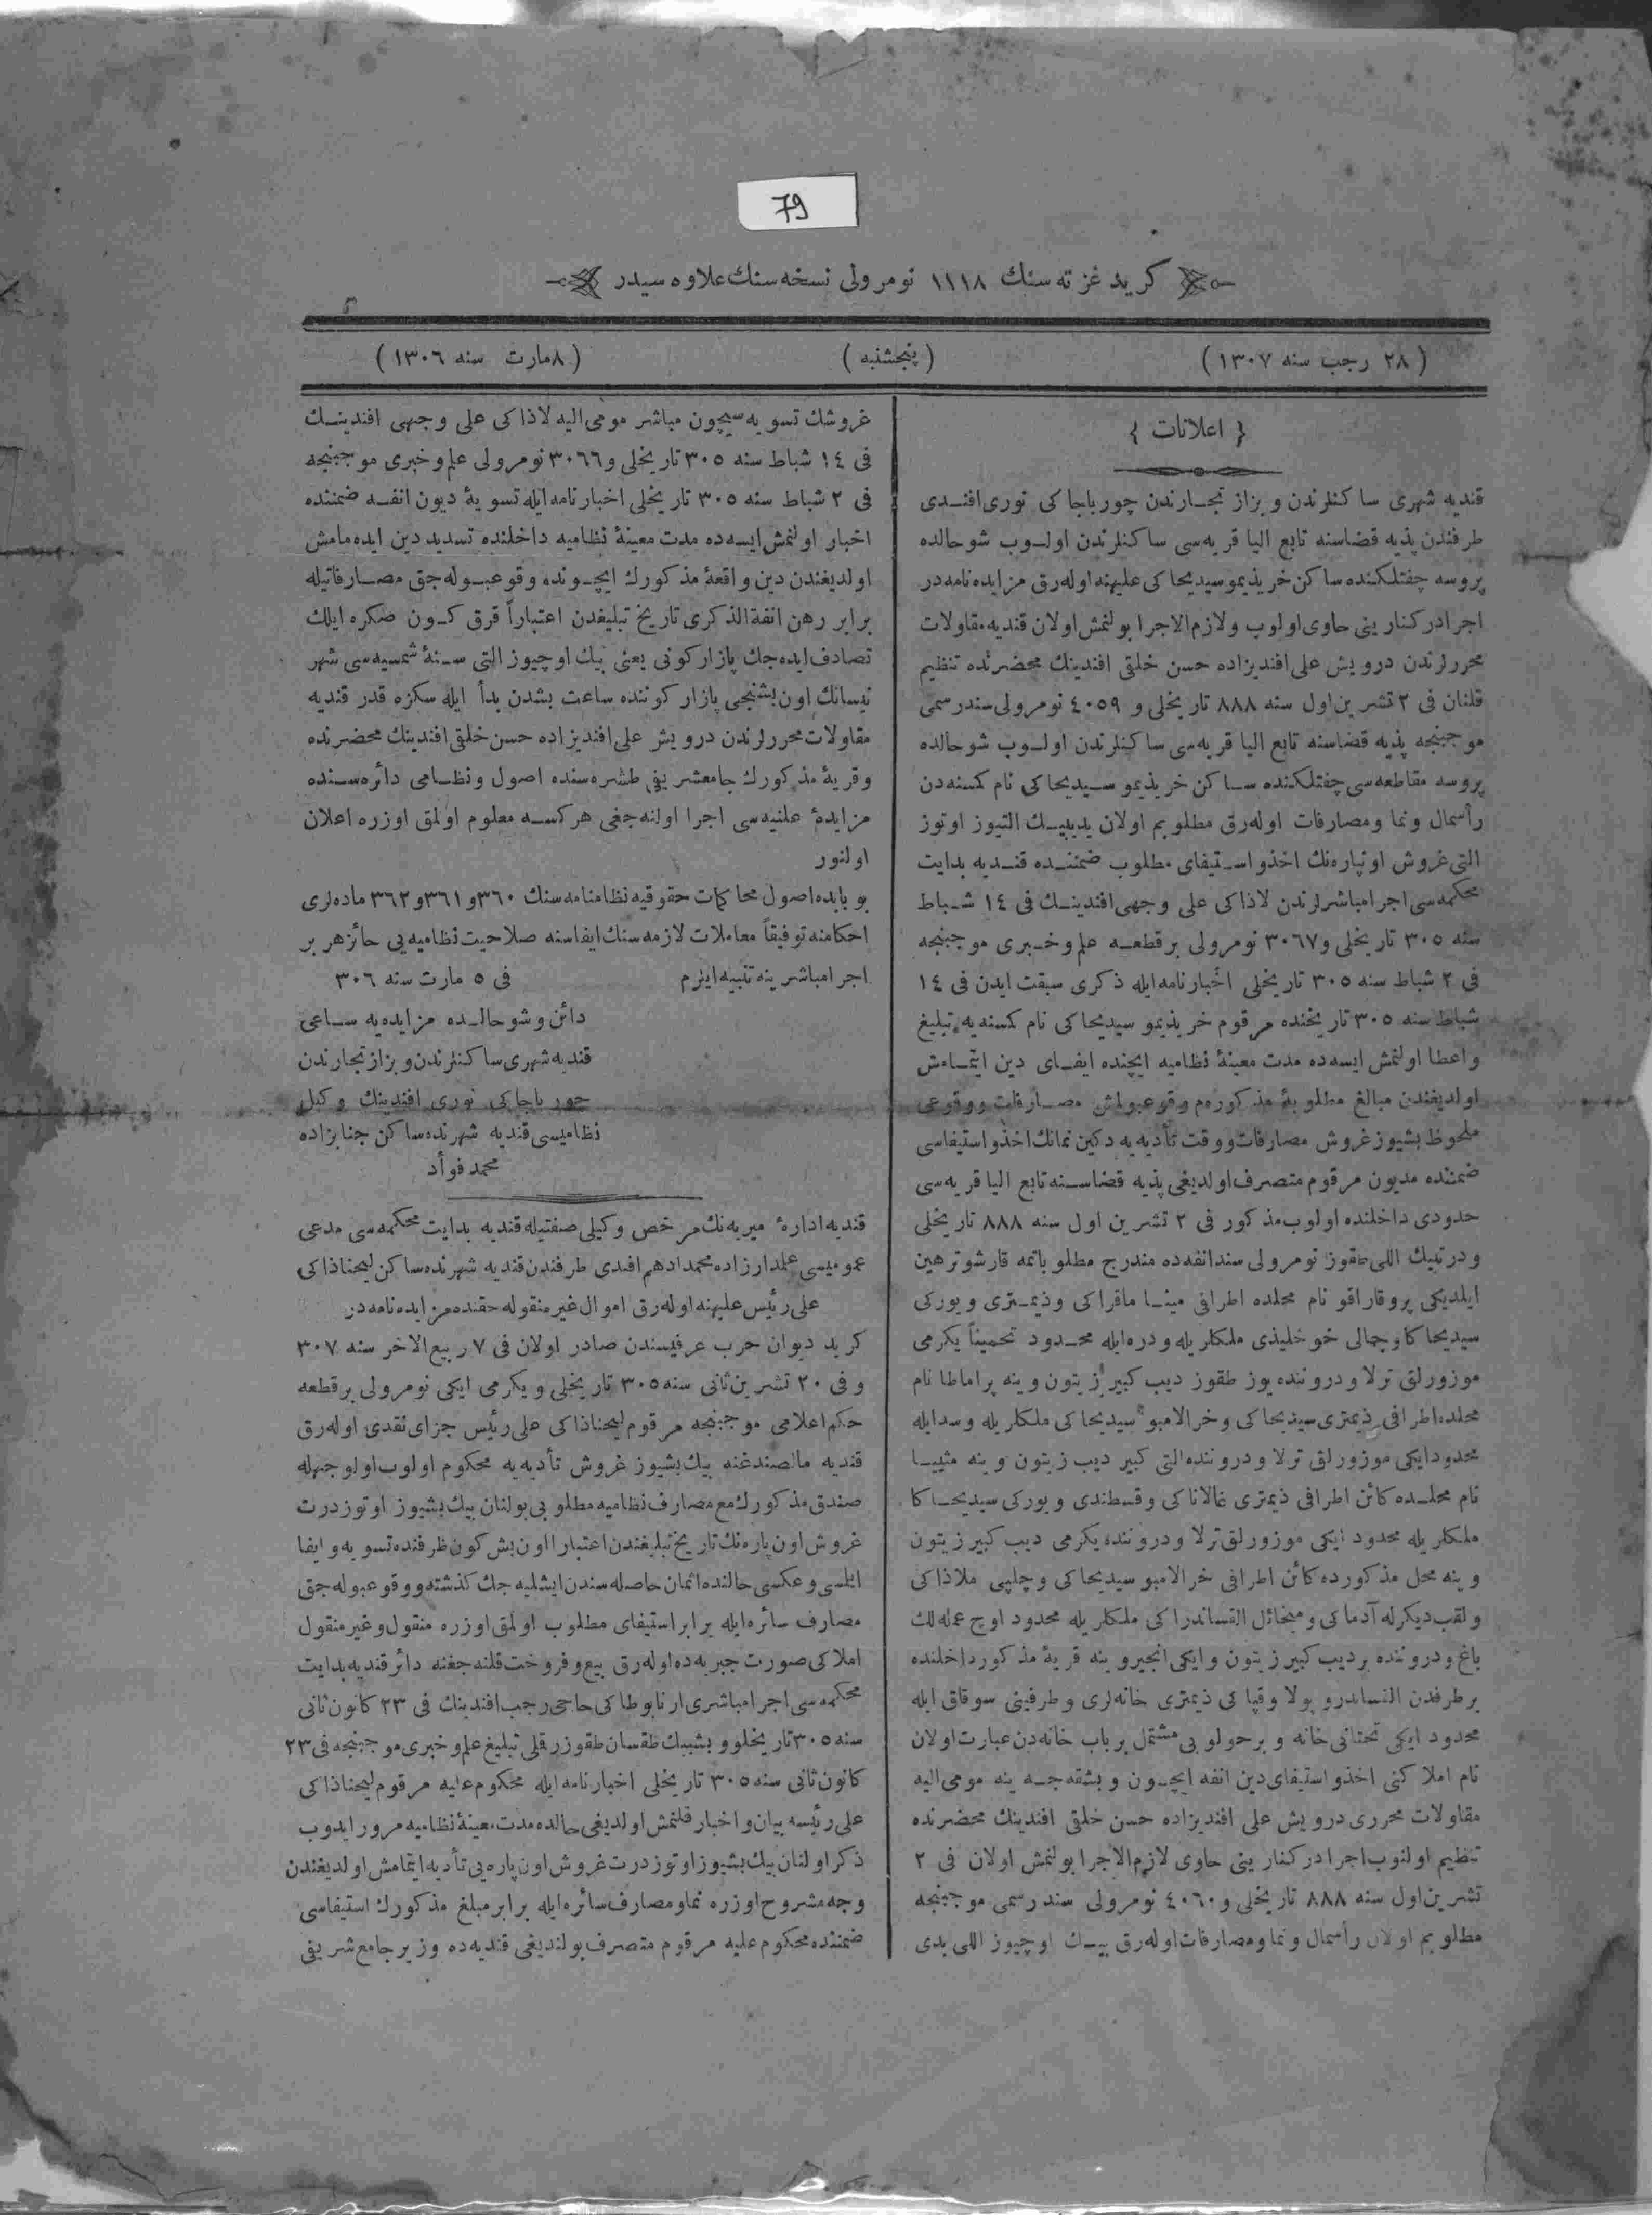 79
كريد غزته سنك ١١١٨ نومرولى نسخه سنك علاوه سيدر
( ٢٨ رجب سنه ١٣٠٧ )
( پنجشنبه )
( ٨ مارت سنه ١٣٠٦ )
{ اعلانات }
قنديه شهرى ساكنلرندن و بزاز تجارندن چورباجاكى نورى افندى
طرفندن پديه قضاسنه تابع اليا قريه سى ساكنلرندن اولوب شو حالده
پروسه چفتلكنده ساكن خريذيمو سيديحاكى عليهنه اوله رق مزايده نامه در
اجرا دركنارينى حاوى اولوب ولازم الاجرا بولنمش اولان قنديه مقاولات
محررلرندن درويش على افنديزاده حسن خلقى افندينك محضرنده تنظيم
قلنان فى ٢ تشرين اول سنه ٨٨٨ تاريخلى و ٤٠٥٩ نومرولى سند رسمى
موجبنجه پديه قضاسنه تابع اليا قريه سى ساكنلرندن اولوب شو حالده
پروسه مقاطعه سى چفتلكنده ساكن خريذيمو سيديحاكى نام كمسنه دن
رأسمال ونما ومصارفات اوله رق مطلوبم اولان يديبيك التيوز اوتوز
التى غروش اونپاره نك اخذو استيفاى مطلوب ضمننده قنديه بدايت
محكمه سى اجرا مباشرلرندن لاذاكى على وجهى افندينك فى ١٤ شباط
سنه ٣٠٥ تاريخلى و ٣٠٦٧ نومرولى بر قطعه علم وخبرى موجبنجه
فى ٢ شباط سنه ٣٠٥ تاريخلى اخبارنامه ايله ذكرى سبقت ايدن فى ١٤
شباط سنه ٣٠٥ تاريخنده مرقوم خريذيمو سيديحاكى نام كمسنه يه تبليغ
واعطا اولنمش ايسه ده مدت معينۀ نظاميه ايچنده ايفاى دين ايتمامش
اولديغندن مبالغ مطلوبۀ مذكوره م وقوعبولمش مصارفات ووقوعى
ملحوظ بشيوز غروش مصارفات ووقت تأديه يه دكين نمانك اخذو استيفاسى
ضمننده مديون مرقوم متصرف اولديغى پديه قضاسنه تابع اليا قريه سى
حدودى داخلنده اولوب مذكور فى ٢ تشرين اول سنه ٨٨٨ تاريخلى
ودرتبيك اللى طقوز نومرولى سند انفه ده مندرج مطلوباتمه قارشو ترهين
ايلديكى پروقاراقو نام محلده اطرافى مينا مافراكى وذيمترى ويوركى
سيديحاكا وجمالى خوخليذى ملكلريله ودره ايله محدود تخميناً يكرمى
موزورلق ترلا ودروننده يوز طقوز ديب كبير زيتون وينه پراماطا نام
محلده اطرافى ذيمترى سيديحاكى وخرالامبو سيديحاكى ملكلريله وسد ايله
محدود ايكى موزورلق ترلا ودروننده التى كبير ديب زيتون وينه
نام محلده كائن اطرافى ذيمترى وقسطندى ويوركى سيديحاكا
ملكلريله محدود ايكى موزورلق ترلا ودروننده يكرمى ديب كبير زيتون
وينه محل مذكورده كائن اطرافى خرالامبو سيديحاكى وچلپى ملاذاكى
ولقب ديكرله آدماكى وميخائل القساندراكى ملكلريله محدود اوچ عمله لك
باغ ودروننده بر ديب كبير زيتون وايكى انجير وينه قريۀ مذكور داخلنده
بر طرفدن القساندرو بولا وقپاكى ذيمترى خانه لرى وطرفينى سوقاق ايله
محدود ايكى تحتانى خانه و بر حولويى مشتمل بر باب خانه دن عبارت اولان
نام املاكنى اخذو استيفاى دين انفه ايچون و بشقه جه ينه مومى اليه
مقاولات محررى درويش على افنديزاده حسن خلقى افندينك محضرنده
تنظيم اولنوب اجرا دركنارينى حاوى لازم الاجرا بولنمش اولان فى ٢
تشرين اول سنه ٨٨٨ تاريخلى و ٤٠٦٠ نومرولى سند رسمى موجبنجه
مطلوبم اولان رأسمال ونما ومصارفات اوله رق بيك اوچيوز اللى يدى
غروشك تسويه سيچون مباشر مومى اليه لاذاكى على وجهى افندينك
فى ١٤ شباط سنه ٣٠٥ تاريخلى و ٣٠٦٦ نومرولى علم وخبرى موجبنجه
فى ٢ شباط سنه ٣٠٥ تاريخلى اخبارنامه ايله تسويۀ ديون انفه ضمننده
اخبار اولنمش ايسه ده مدت معينۀ نظاميه داخلنده تسديد دين ايده مامش
اولديغندن دين واقعۀ مذكورك ايچونده وقوعبوله جق مصارفاتيله
برابر رهن انفة الذكرى تاريخ تبليغدن اعتباراً قرق كون صكره ايلك
تصادف ايده جك پازار كونى يعنى بيك اوچيوز التى سنۀ شمسيه سى شهر
نيسانك اون بشنجى پازار كوننده ساعت بشدن بدأ ايله سكزه قدر قنديه
مقاولات محررلرندن درويش على افنديزاده حسن خلقى افندينك محضرنده
وقريۀ مذكورك جامعشريفى طشره سنده اصول ونظامى دائره سنده
مزايدۀ علنيه سى اجرا اولنه جغى هركسه معلوم اولمق اوزره اعلان
اولنور
بو بابده اصول محاكمات حقوقيه نظامنامه سنك ٣٦٠ و ٣٦١ و ٣٦٢ ماده لرى
احكامنه توفيقاً معاملات لازمه سنك ايفاسنه صلاحيت نظاميه يى حائز هر بر
اجرا مباشرينه تنبيه ايلرم فى ٥ مارت سنه ٣٠٦
دائن وشو حالده مزايده يه ساعى
قنديه شهرى ساكنلرندن و بزاز تجارندن
چورباجاكى نورى افندينك وكيل
نظاميسى قنديه شهرنده ساكن جنابزاده
محمد فوأد
قنديه ادارۀ ميريه نك مرخص وكيلى صفتيله قنديه بدايت محكمه سى مدعى
عموميسى علمدارزاده محمد ادهم افندى طرفندن قنديه شهرنده ساكن ليحناذاكى
على رئيس عليهنه اوله رق اموال غير منقوله حقنده مزايده نامه در
كريد ديوان حرب عرفيسندن صادر اولان فى ٧ ربيع الاخر سنه ٣٠٧
وفى ٢٠ تشرين ثانى سنه ٣٠٥ تاريخلى ويكرمى ايكى نومرولى بر قطعه
حكم اعلامى موجبنجه مرقوم ليحناذاكى على رئيس جزاى نقدى اوله رق
قنديه مالصندغنه بيك بشيوز غروش تأديه يه محكوم اولوب اولوجهله
صندق مذكورك مع مصارف نظاميه مطلوبى بولنان بيك بشيوز اوتوز درت
غروش اون پاره نك تاريخ تبليغندن اعتبارا اون بش كون ظرفنده تسويه وايفا
ايلسى وعكسى حالنده اثمان حاصله سندن ايشليه جك كذشته ووقوعبوله جق
مصارف سائره ايله برابر استيفاى مطلوب اولمق اوزره منقول وغير منقول
املاكى صورت جبريه ده اوله رق بيع وفروخت قلنه جغنه دائر قنديه بدايت
محكمه سى اجرا مباشرى ارنابوطاكى حاجى رجب افندينك فى ٢٣ كانون ثانى
سنه ٣٠٥ تاريخلو و بشبيك طقسان طقوز رقملى تبليغ علم وخبرى موجبنجه فى ٢٣
كانون ثانى سنه ٣٠٥ تاريخلى اخبارنامه ايله محكوم عليه مرقوم ليحناذاكى
على رئيسه بيان واخبار قلنمش اولديغى حالده مدت معينۀ نظاميه مرور ايدوب
ذكر اولنان بيك بشيوز اوتوز درت غروش اون پاره يى تأديه ايتمامش اولديغندن
وجه مشروح اوزره نما ومصارف سائره ايله برابر مبلغ مذكورك استيفاسى
ضمننده محكوم عليه مرقوم متصرف بولنديغى قنديه ده وزير جامع شريفى